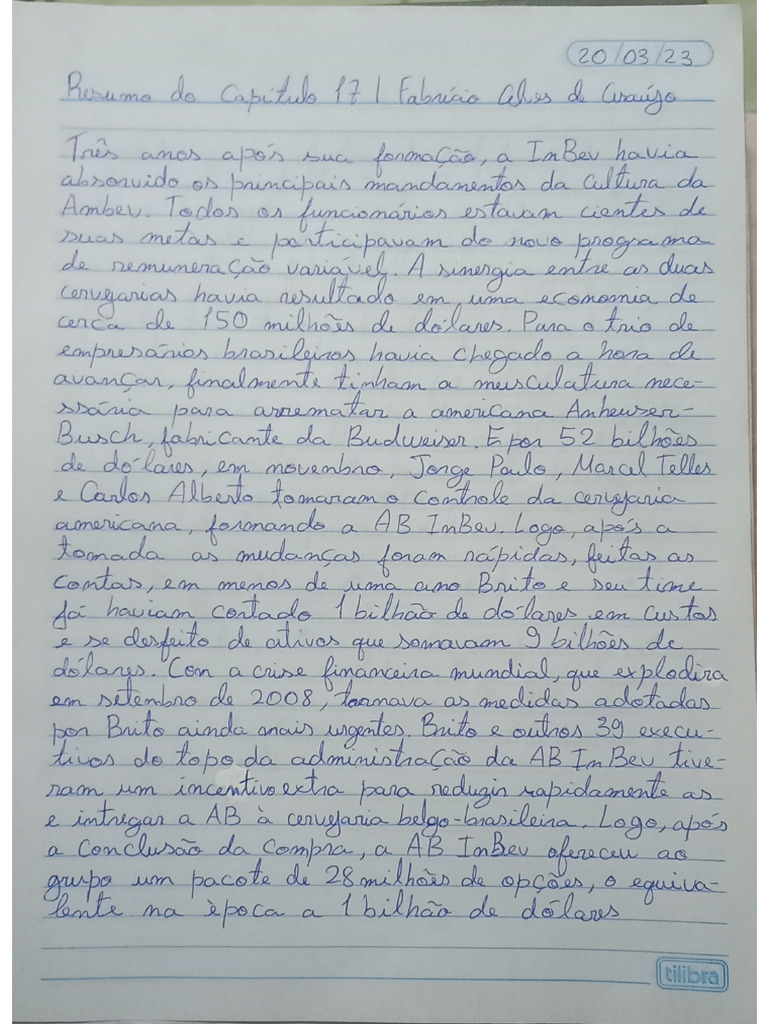 20/03/23
Resumo do Capítulo 17 | Fabrício Alves de Araújo
Três anos após sua formação, a InBev havia
absorvido os principais mandamentos da cultura da
Ambev. Todos os funcionários estavam cientes de
suas metas e participavam do novo programa
de remuneração variável. A sinergia entre as duas
cervejarias havia resultado em uma economia de
cerca de 150 milhões de dólares. Para o trio de
empresários brasileiros havia chegado a hora de
avançar, finalmente tinham a musculatura nece-
ssária para arrematar a americana Anheuser-
Busch, fabricante da Budweiser. E por 52 bilhões
de dólares, em novembro, Jorge Paulo, Marcel Telles
e Carlos Alberto tomaram o controle da cervejaria
americana, formando a AB InBev. Logo, após a
tomada as mudanças foram rápidas, feitas as
contas, em menos de uma ano Brito e seu time
já haviam cortado 1 bilhão de dólares em custos
e se desfeito de ativos que somavam 9 bilhões de
dólares. Com a crise financeira mundial, que explodira
em setembro de 2008, tornava as medidas adotadas
por Brito ainda mais urgentes. Brito e outros 39 execu-
tivos do topo da administração da AB InBev tive-
ram um incentivo extra para reduzir rapidamente as
e intregar a AB à cervejaria belgo-brasileira. Logo, após
a conclusão da compra, a AB InBev ofereceu ao
grupo um pacote de 28 milhões de opções, o equiva-
lente na època a 1 bilhão de dólares
tilibra